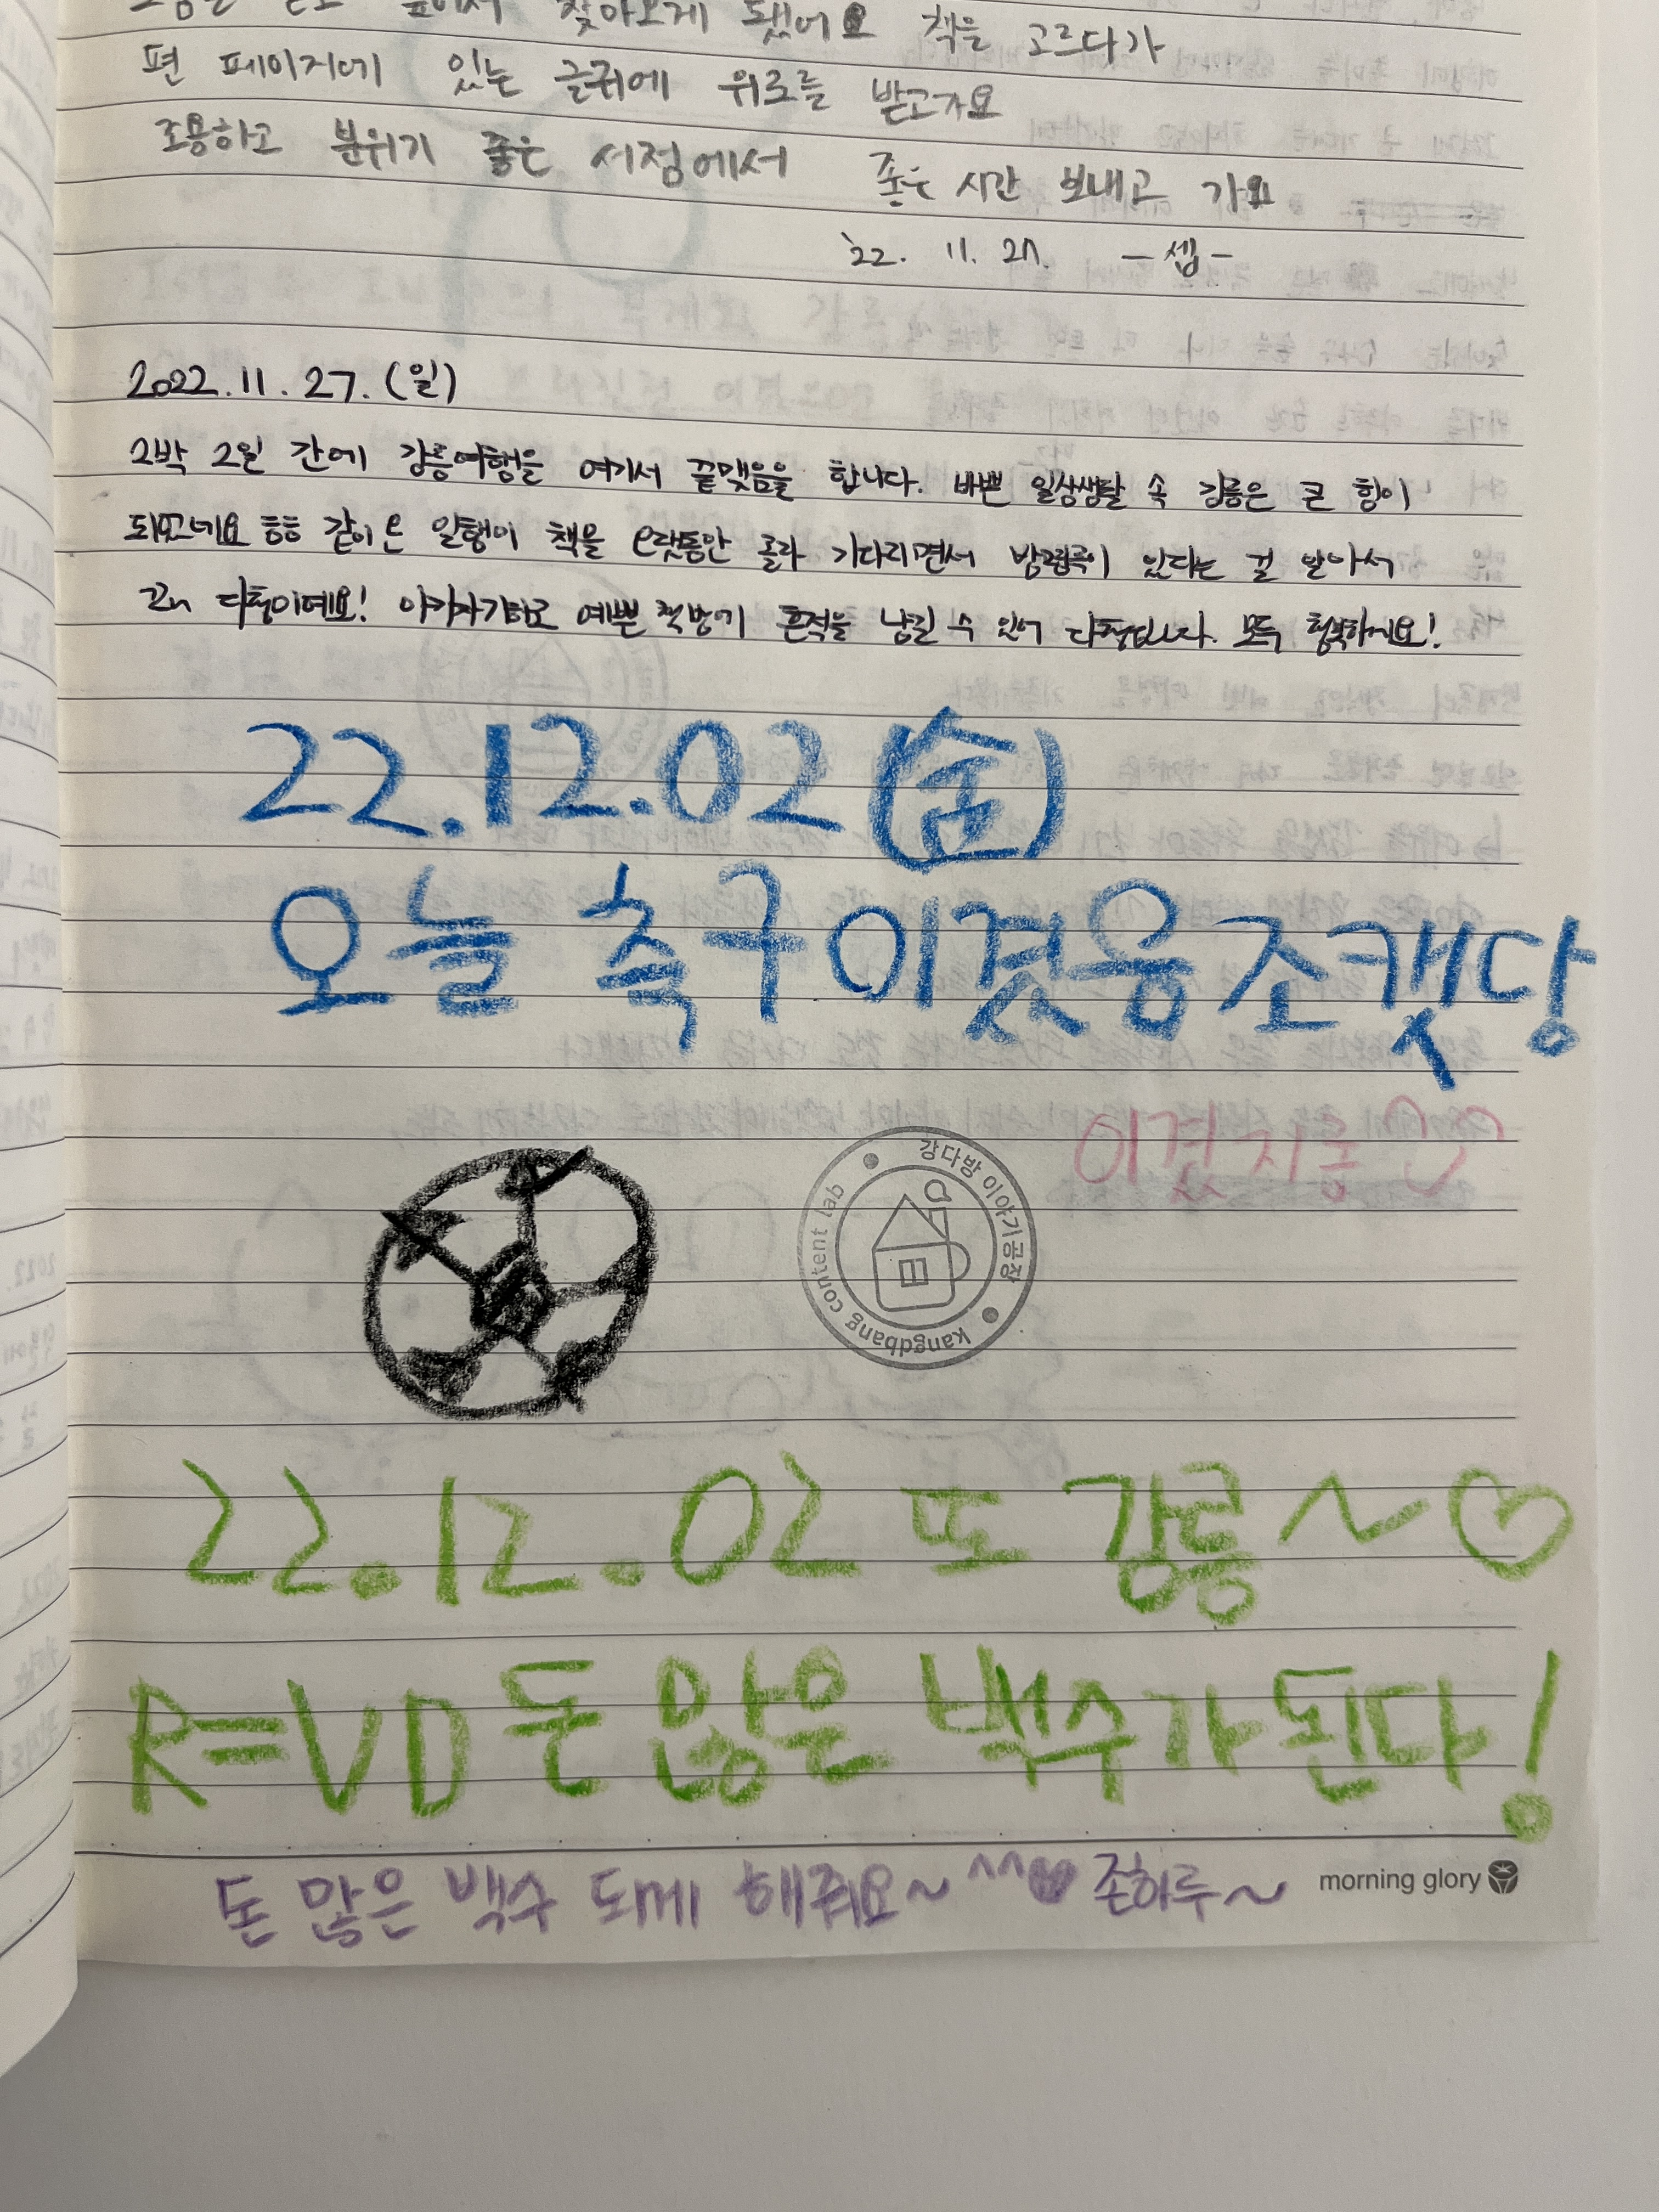 찾아오게 됐어요 책을 고르다가
편 페이지에 있는 글귀에 위로를 받고가요
조용하고 분위기 좋은 서점에서 좋은 시간 보내고 가요
'22. 11. 27. -셉-
2022.11.27.(일)
2박 2일 간에 강릉여행을 여기서 끝맺음을 합니다. 바쁜 일상생활 속 강릉은 큰 힘이
되었네요 ㅎㅎ 같이 온 일행이 책을 오랫동안 골라 기다리면서 방명록이 있다는 걸 알아서
다행이에요! 예쁜 책방에 흔적을 남길 수 있어 다행입니다. 모두 행복하세요!
22.12.02(金)
오늘 축구이겼음조캣당
이겼지롱♡
강다방 이야기공장
kangdbang content lab
22.12.02 또 강릉~♡
R=VD 돈 많은 백수가 된다!
돈 많은 백수 되게 해줘요~^^♥ 존하루~
morning glory